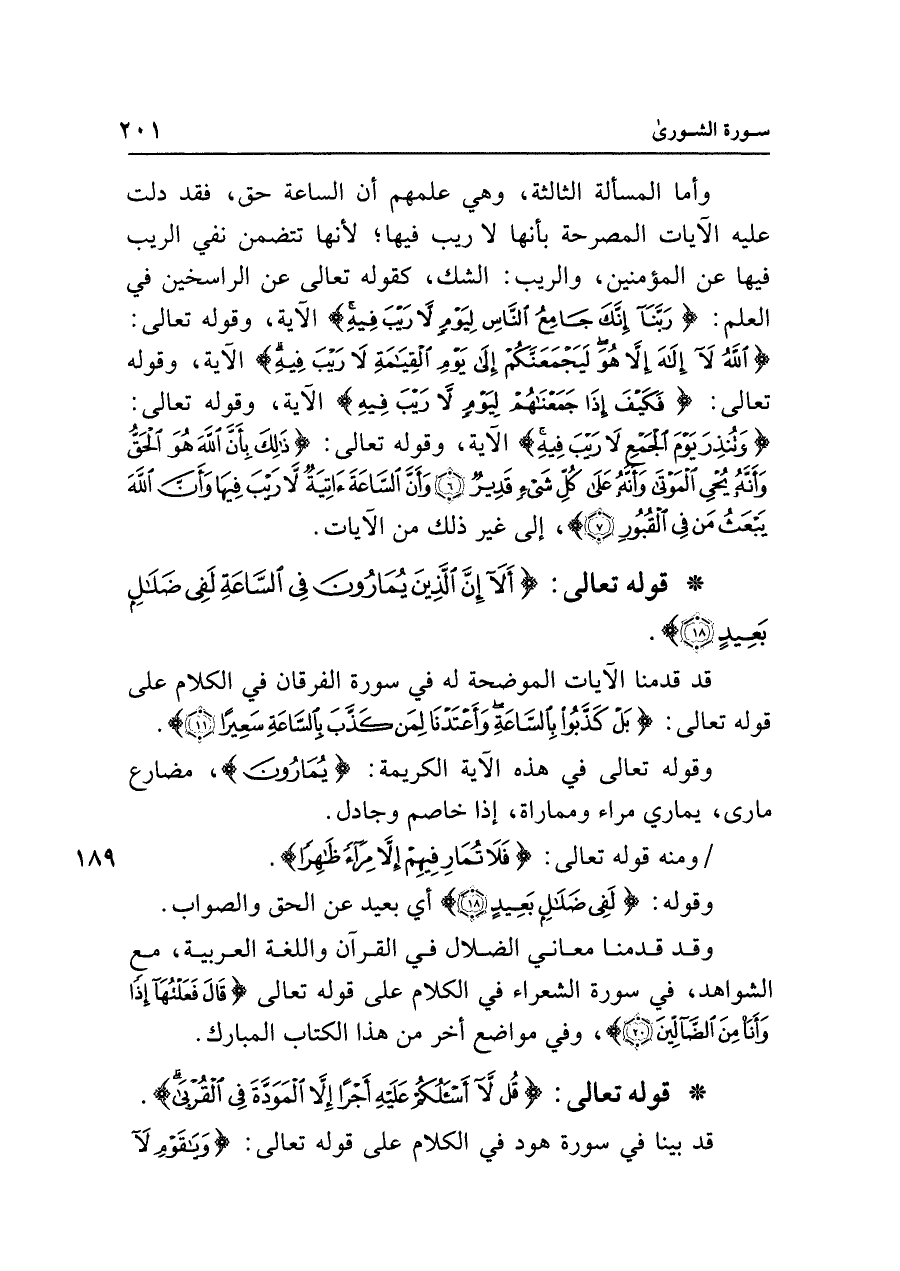 سورة الشورىٰ ٢٠١
وأما المسألة الثالثة، وهي علمهم أن الساعة حق، فقد دلت
عليه الآيات المصرحة بأنها لا ريب فيها؛ لأنها تتضمن نفي الريب
فيها عن المؤمنين، والريب: الشك، كقوله تعالى عن الراسخين في
العلم: ﴿رَبَّنَآ إِنَّكَ جَامِعُ ٱلنَّاسِ لِيَوْمٍ لَّا رَيْبَ فِيهِۚ﴾ الآية، وقوله تعالى:
﴿ٱللَّهُ لَآ إِلَٰهَ إِلَّا هُوَۖ لَيَجْمَعَنَّكُمْ إِلَىٰ يَوْمِ ٱلْقِيَٰمَةِ لَا رَيْبَ فِيهِۗ﴾ الآية، وقوله
تعالى: ﴿فَكَيْفَ إِذَا جَمَعْنَٰهُمْ لِيَوْمٍ لَّا رَيْبَ فِيهِ﴾ الآية، وقوله تعالى:
﴿وَتُنذِرَ يَوْمَ ٱلْجَمْعِ لَا رَيْبَ فِيهِۚ﴾ الآية، وقوله تعالى: ﴿ذَٰلِكَ بِأَنَّ ٱللَّهَ هُوَ ٱلْحَقُّ
وَأَنَّهُۥ يُحْىِ ٱلْمَوْتَىٰ وَأَنَّهُۥ عَلَىٰ كُلِّ شَىْءٍ قَدِيرٌ ٦ وَأَنَّ ٱلسَّاعَةَ ءَاتِيَةٌ لَّا رَيْبَ فِيهَا وَأَنَّ ٱللَّهَ
يَبْعَثُ مَن فِى ٱلْقُبُورِ ٧﴾، إلى غير ذلك من الآيات.
* قوله تعالى: ﴿أَلَآ إِنَّ ٱلَّذِينَ يُمَارُونَ فِى ٱلسَّاعَةِ لَفِى ضَلَٰلٍۭ
بَعِيدٍ ١٨﴾.
قد قدمنا الآيات الموضحة له في سورة الفرقان في الكلام على
قوله تعالى: ﴿بَلْ كَذَّبُوا۟ بِٱلسَّاعَةِۖ وَأَعْتَدْنَا لِمَن كَذَّبَ بِٱلسَّاعَةِ سَعِيرًا ١١﴾.
وقوله تعالى في هذه الآية الكريمة: ﴿يُمَارُونَ﴾، مضارع
مارى، يماري مراء ومماراة، إذا خاصم وجادل.
/ومنه قوله تعالى: ﴿فَلَا تُمَارِ فِيهِمْ إِلَّا مِرَآءً ظَٰهِرًا﴾. ١٨٩
وقوله: ﴿لَفِى ضَلَٰلٍۭ بَعِيدٍ ١٨﴾ أي بعيد عن الحق والصواب.
وقد قدمنا معاني الضلال في القرآن واللغة العربية، مع
الشواهد، في سورة الشعراء في الكلام على قوله تعالى ﴿قَالَ فَعَلْتُهَآ إِذًا
وَأَنَا۠ مِنَ ٱلضَّآلِّينَ ٢٠﴾، وفي مواضع أخر من هذا الكتاب المبارك.
* قوله تعالى: ﴿قُل لَّآ أَسْـَٔلُكُمْ عَلَيْهِ أَجْرًا إِلَّا ٱلْمَوَدَّةَ فِى ٱلْقُرْبَىٰۗ﴾.
قد بينا في سورة هود في الكلام على قوله تعالى: ﴿وَيَٰقَوْمِ لَآ